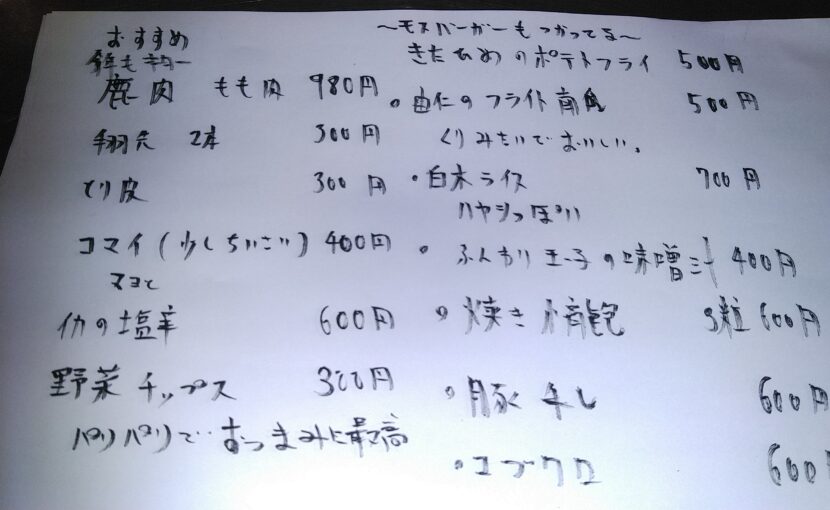 おすすめ
鹿肉 もも肉 980円
2本 300円
とり皮 300円
コマイ(少しちいさい) 400円
マヨと
イカの塩辛 600円
野菜チップス 300円
パリパリで おつまみに最高
〜モスバーガーもつかってる〜
きたひめのポテトフライ 500円
・由仁のフライド 500円
くりみたいでおいしい。
・白木ライス 700円
ハヤシっぽい
・ふんわり玉子の味噌汁 400円
・焼き 3粒 600円
・豚串し 600円
・コブクロ 600円